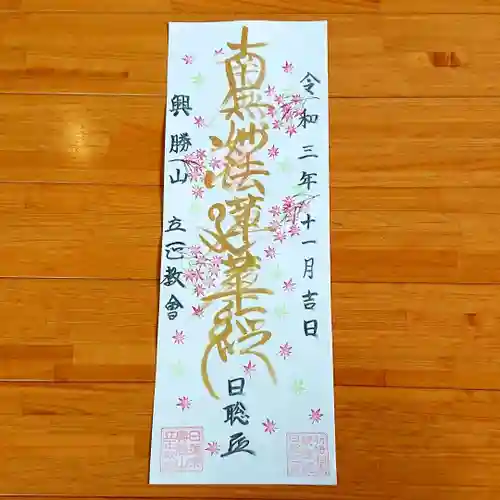 令和三年十一月吉日
南無妙法蓮華経
日聡
興勝山 立正教會